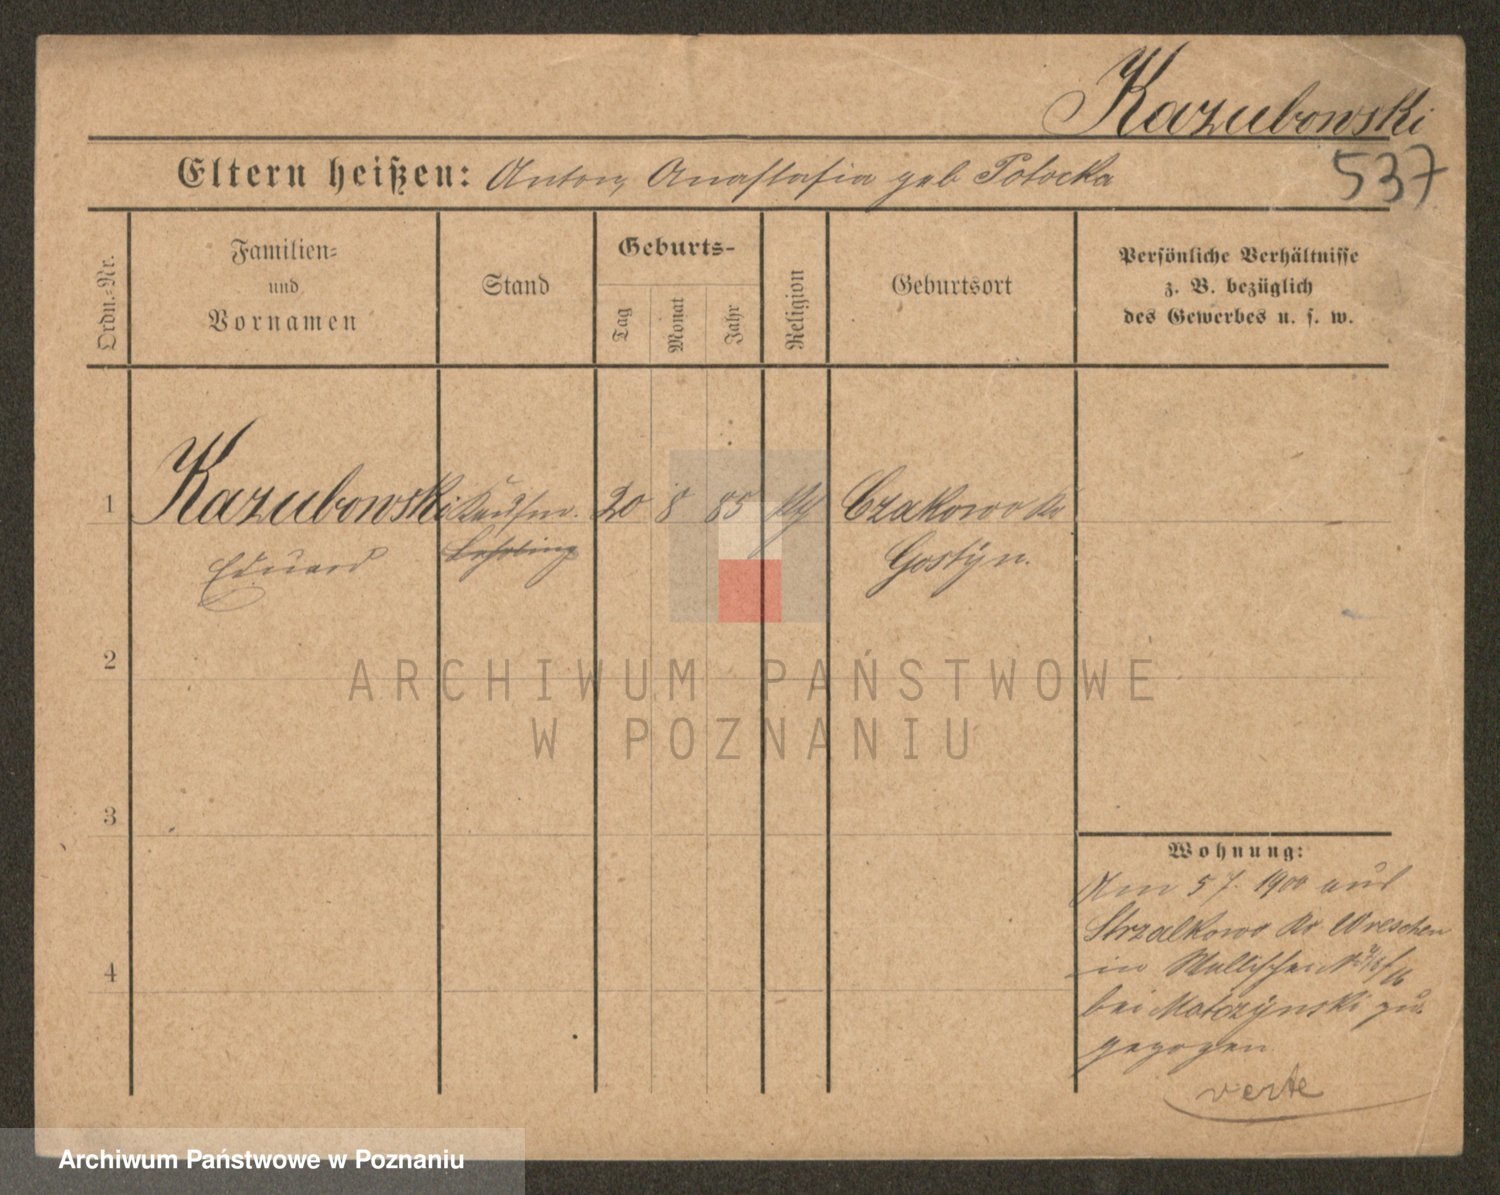 Kazubowski
537
Eltern heißen: Anton, Anastasia geb Potocka
Ordn.-Nr.
Familien-
und
Vornamen
Stand
Geburts-
Tag
Monat
Jahr
Religion
Geburtsort
Persönliche Verhältnisse
z. B. bezüglich
des Gewerbes u. s. w.
1
Kazubowski Kaufm. 20 8 85 Czakowo Kr
Eduard Lehrling Gostyn.
2
ARCHIWUM PAŃSTWOWE
W POZNANIU
3
4
Wohnung:
Am 5 7. 1900 aus
Strzalkowo Kr Wreschen
in Wallischei
bei Motczynski zu-
gezogen
verte
Archiwum Państwowe w Poznaniu